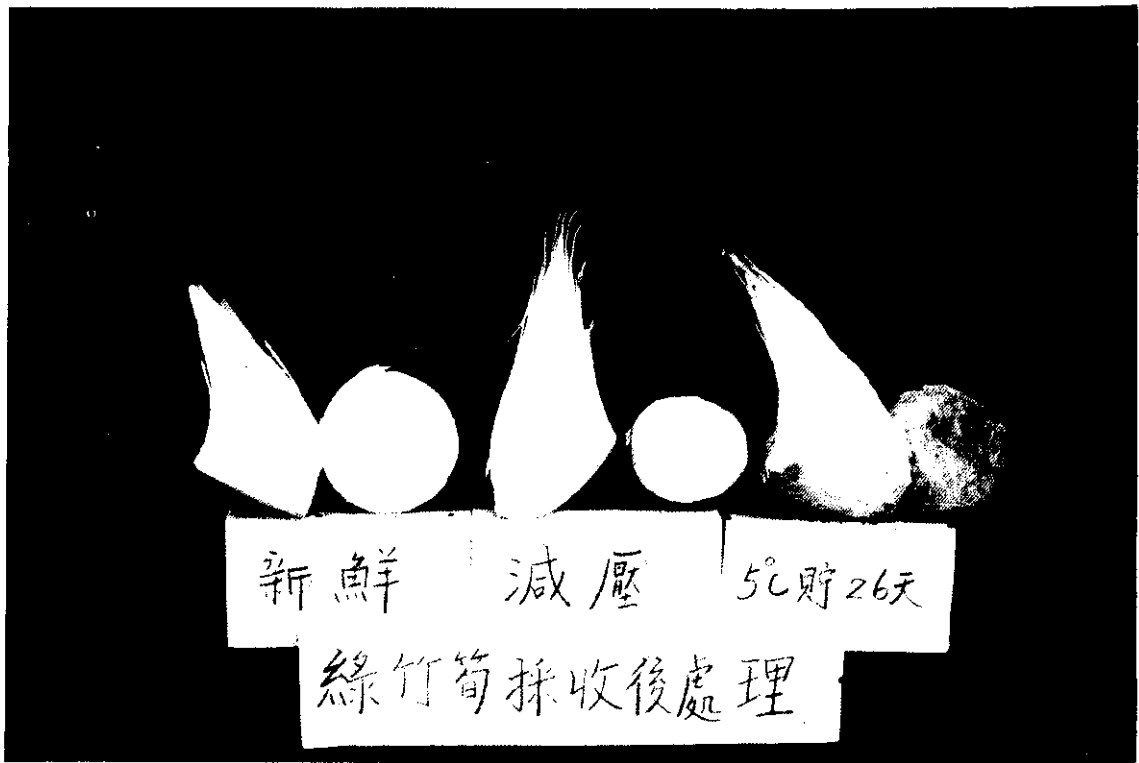 新鮮 減壓 5℃貯26天
綠竹筍採收後處理